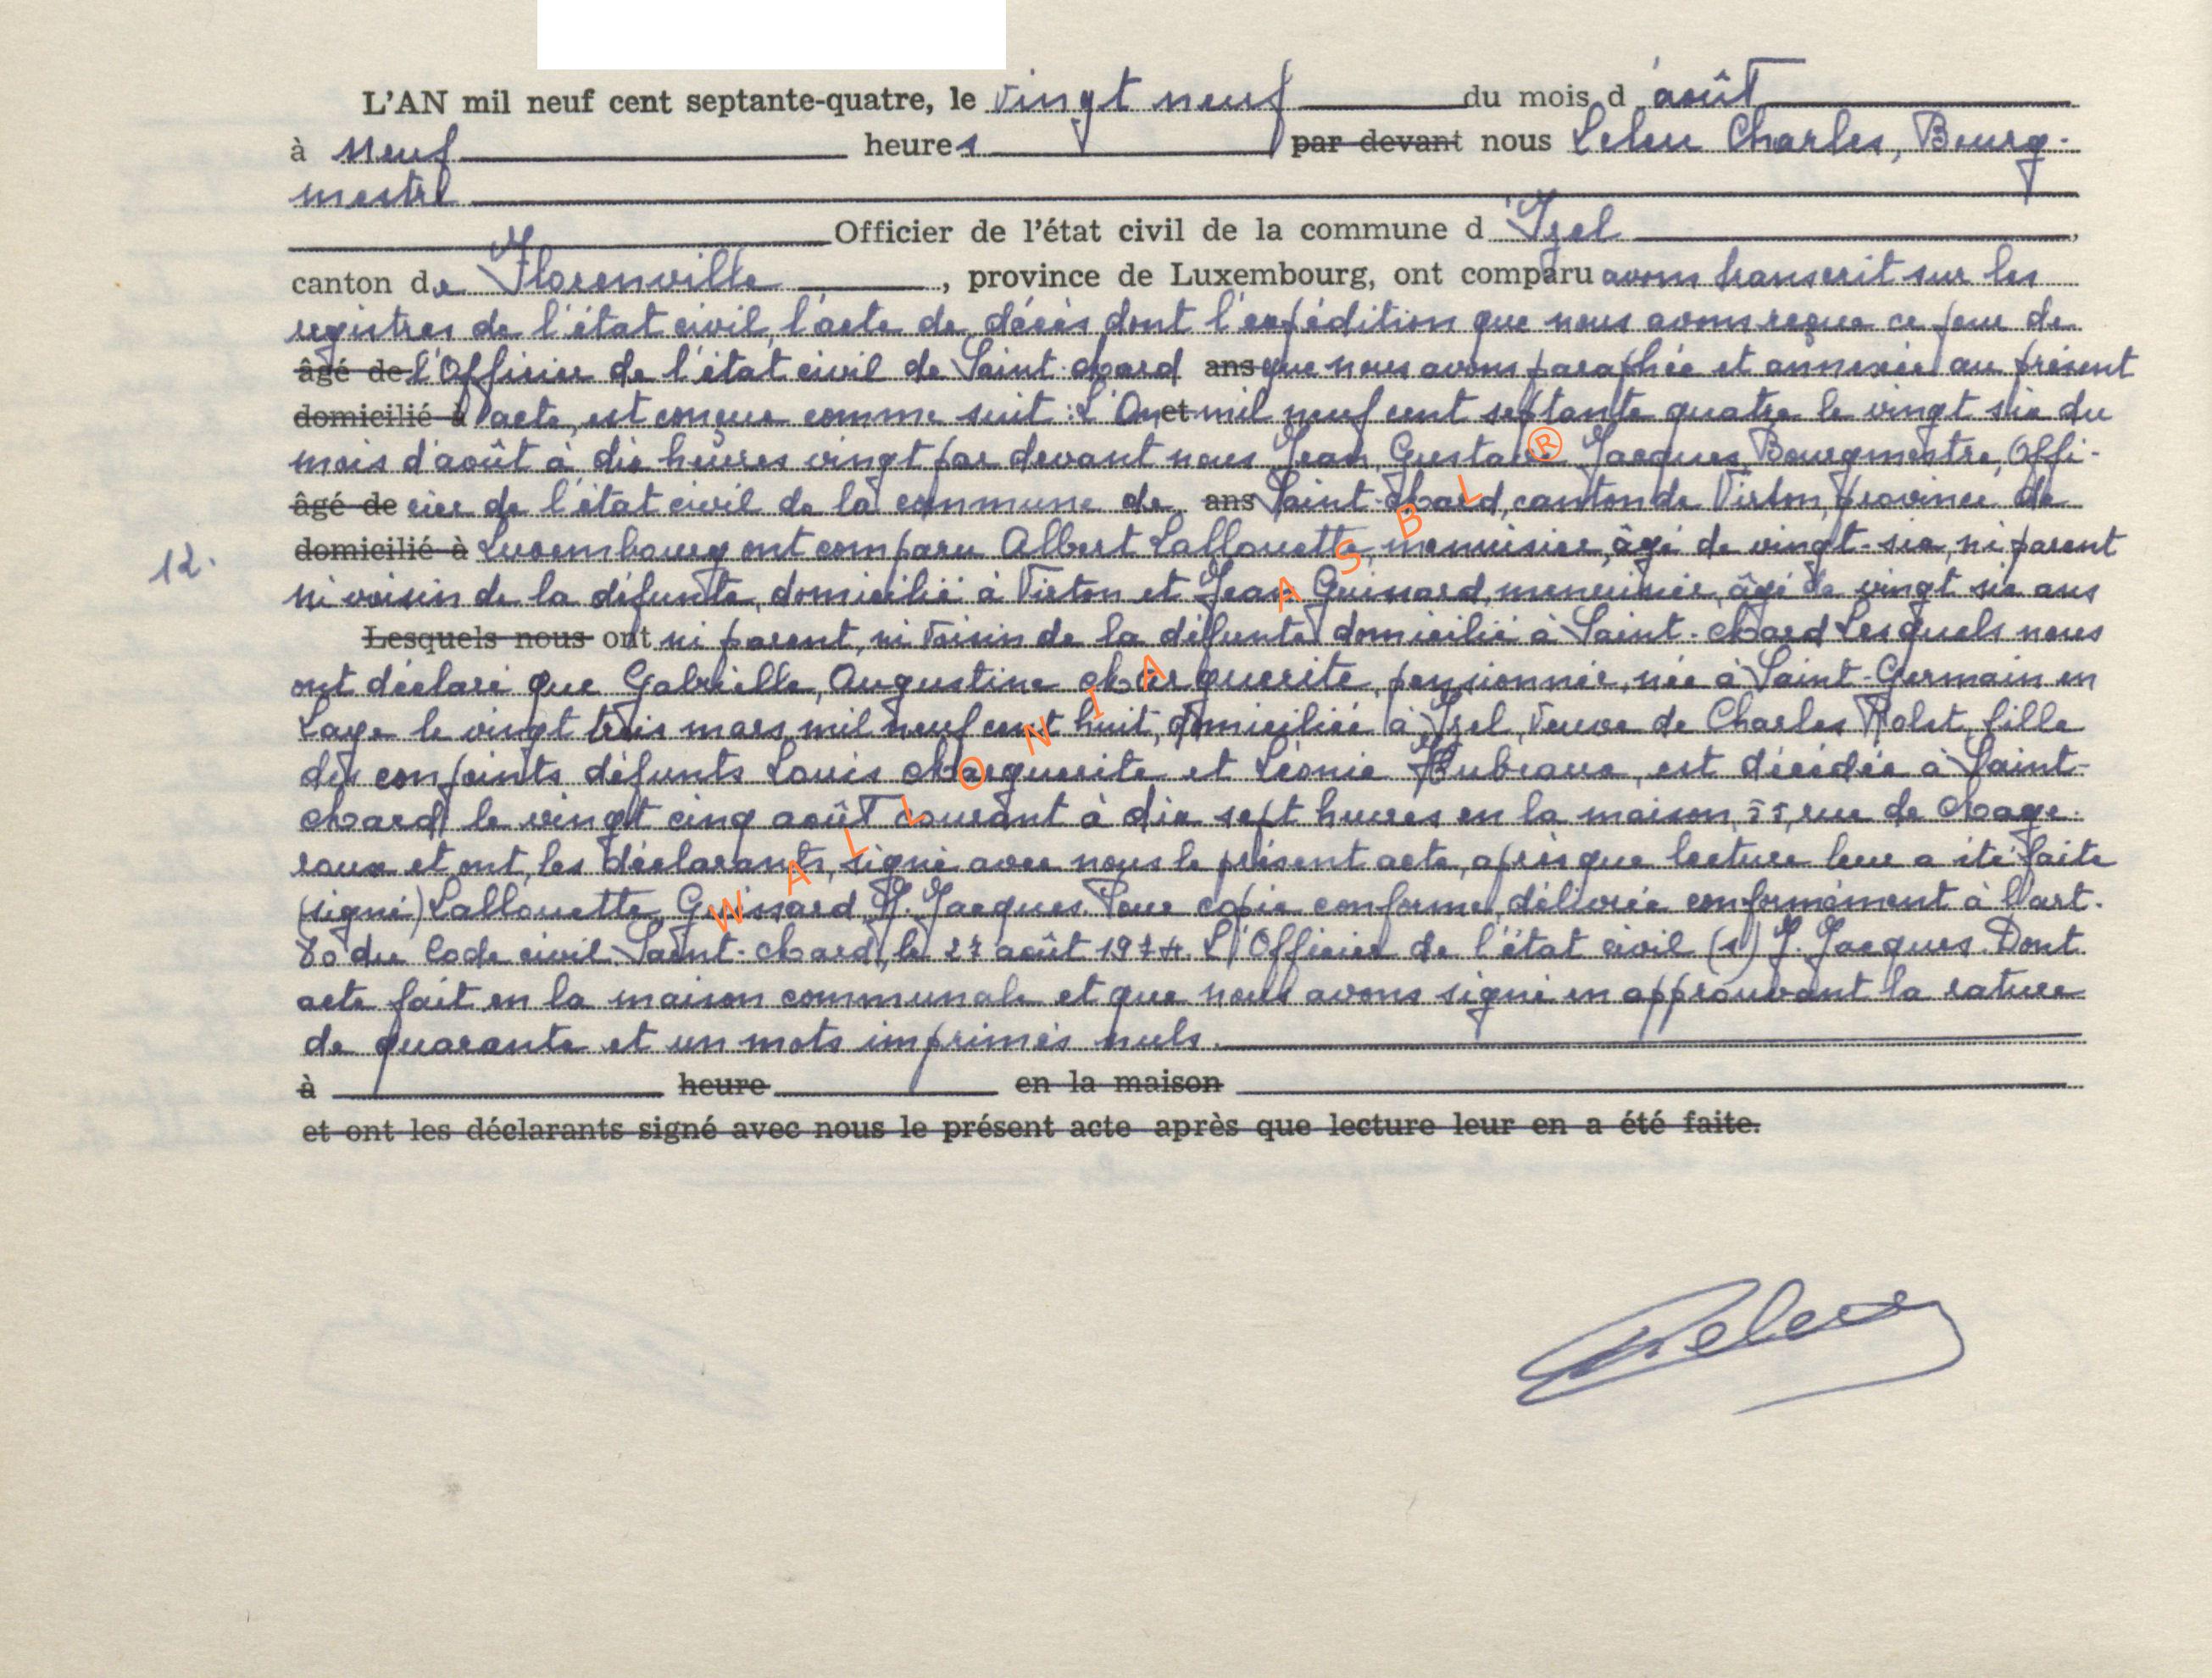 L'AN mil neuf cent septante-quatre, le vingt neuf du mois d'août
à neuf heures par devant nous Leleu Charles, Bourg-
mestre
Officier de l'état civil de la commune d'Izel,
canton de Florenville, province de Luxembourg, ont comparu avons transcrit sur les
registres de l'état civil, l'acte de décès dont l'expédition que nous avons reçue ce jour de
âgé de l'Officier de l'état civil de Saint-Mard ans que nous avons paraphée et annexée au présent
domicilié à acte, est conçue comme suit : L'An et mil neuf cent septante quatre le vingt six du
mois d'août à dix heures vingt par devant nous Jean, Gustave Jacques, Bourgmestre, Offi-
âgé de cier de l'état civil de la commune de ans Saint-Mard, canton de Virton, province de
12. domicilié à Luxembourg ont comparu Albert Lallouette, menuisier, âgé de vingt-six, ni parent
ni voisin de la défunte, domicilié à Virton et Jean Guissard, menuisier, âgé de vingt six ans
Lesquels nous ont ni parent, ni voisin de la défunte domicilié à Saint-Mard Lesquels nous
ont déclaré que Gabrielle, Augustine Marguerite, pensionnée, née à Saint-Germain en
Laye le vingt trois mars mil neuf cent huit, domiciliée à Izel, veuve de Charles Rolet, fille
des conjoints défunts Louis Marguerite et Léonie Hubeaux, est décédée à Saint-
Mard le vingt cinq août courant à dix sept heures en la maison, 55, rue de Mage-
roux et ont, les déclarants, signé avec nous le présent acte, après que lecture leur a été faite
(signé) Lallouette, Guissard, J. Jacques. Pour copie conforme, délivrée conformément à l'art.
80 du Code civil. Saint-Mard, le 27 août 1974. L'Officier de l'état civil (s) J. Jacques. Dont
acte fait en la maison communale et que nous avons signé en approuvant la rature
de quarante et un mots imprimés nuls.
à heure en la maison
et ont les déclarants signé avec nous le présent acte après que lecture leur en a été faite.
Leleu
WALLONIA ASBL ®